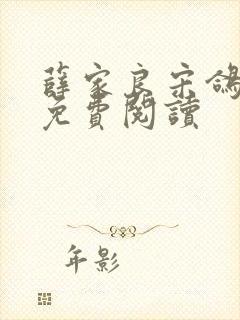 薛家良宋鴿
免費閱讀
年影